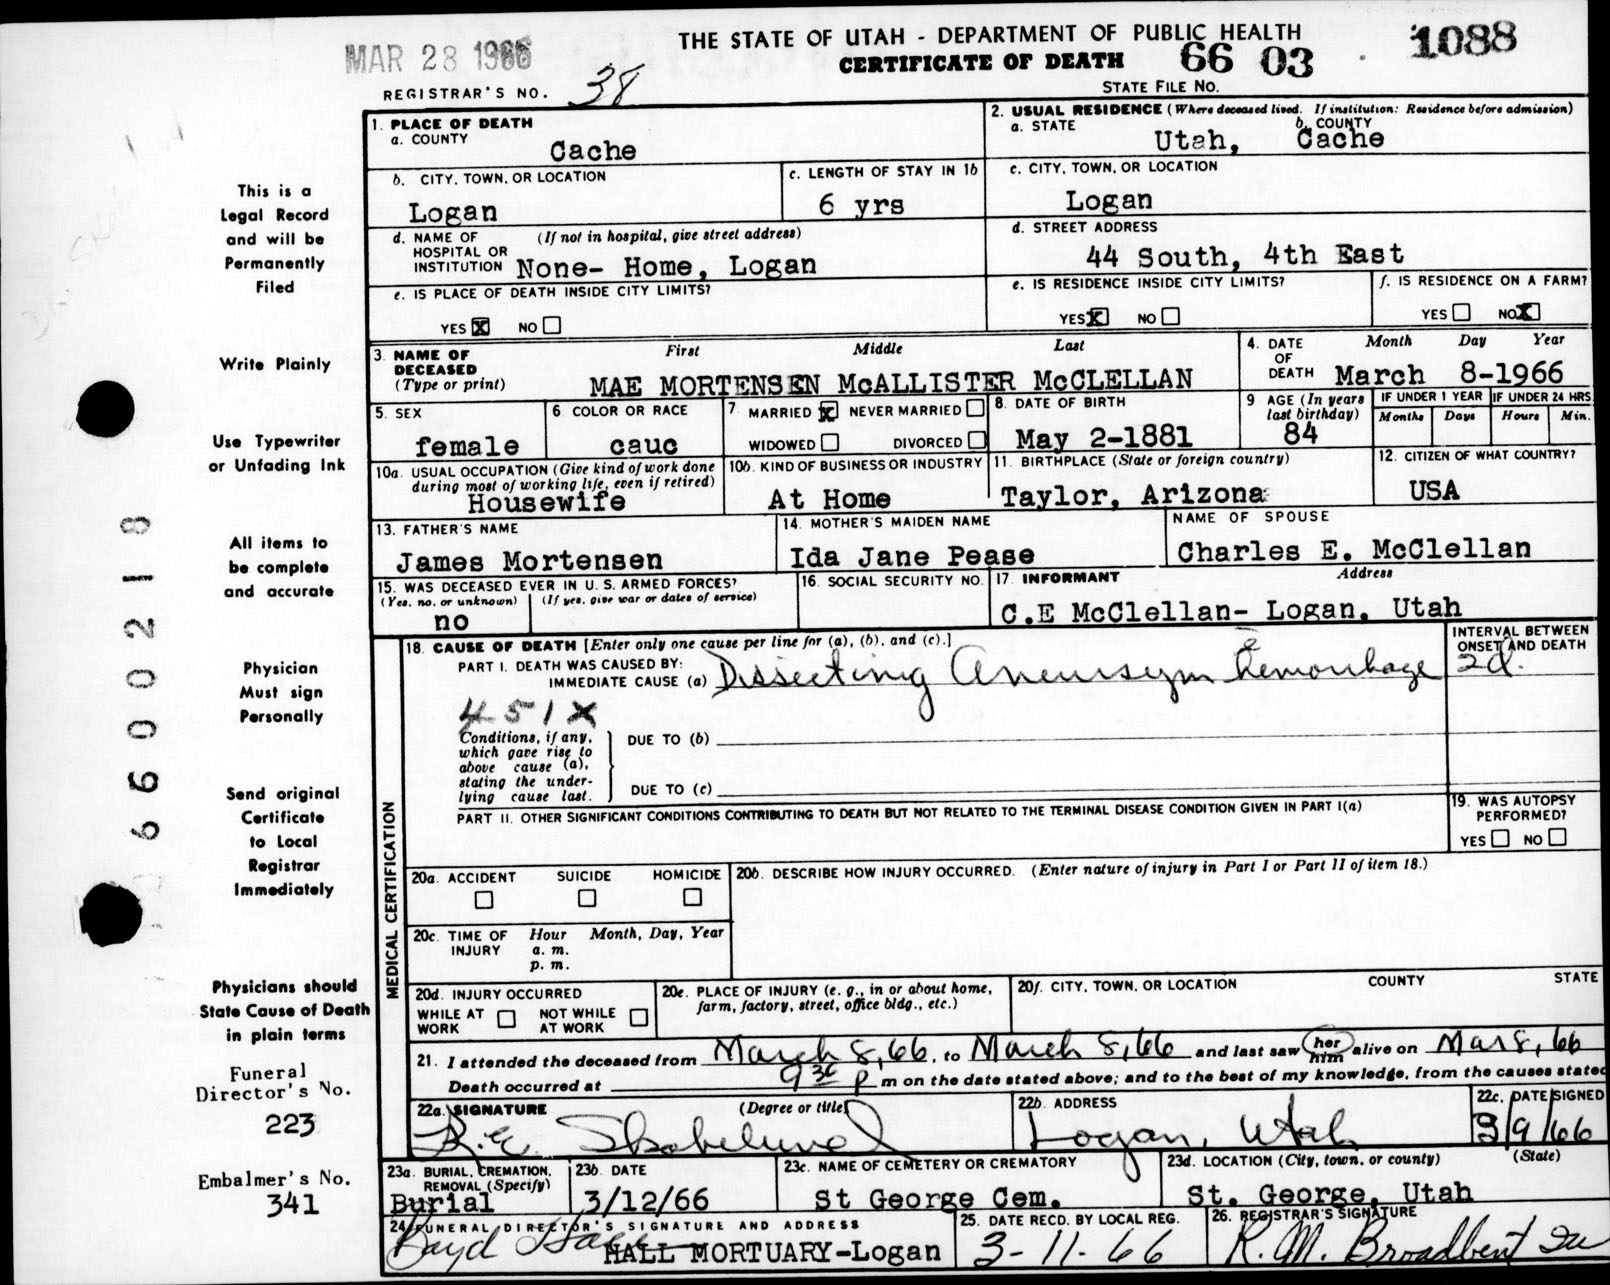 THE STATE OF UTAH - DEPARTMENT OF PUBLIC HEALTH
CERTIFICATE OF DEATH
MAR 28 1966
66 03 1088
STATE FILE NO.
REGISTRAR'S NO. 38
1. PLACE OF DEATH
a. COUNTY
Cache
2. USUAL RESIDENCE (Where deceased lived. If institution: Residence before admission)
a. STATE b. COUNTY
Utah, Cache
b. CITY, TOWN, OR LOCATION
Logan
c. LENGTH OF STAY IN 1b
6 yrs
c. CITY, TOWN, OR LOCATION
Logan
d. NAME OF HOSPITAL OR INSTITUTION (If not in hospital, give street address)
None- Home, Logan
d. STREET ADDRESS
44 South, 4th East
e. IS PLACE OF DEATH INSIDE CITY LIMITS?
YES X NO
e. IS RESIDENCE INSIDE CITY LIMITS?
YES X NO
f. IS RESIDENCE ON A FARM?
YES NO X
3. NAME OF DECEASED (Type or print)
First Middle Last
MAE MORTENSEN McALLISTER McCLELLAN
4. DATE OF DEATH Month Day Year
March 8-1966
5. SEX
female
6. COLOR OR RACE
cauc
7. MARRIED X NEVER MARRIED
WIDOWED DIVORCED
8. DATE OF BIRTH
May 2-1881
9 AGE (In years last birthday)
84
IF UNDER 1 YEAR
Months Days
IF UNDER 24 HRS
Hours Min.
10a. USUAL OCCUPATION (Give kind of work done during most of working life, even if retired)
Housewife
10b. KIND OF BUSINESS OR INDUSTRY
At Home
11. BIRTHPLACE (State or foreign country)
Taylor, Arizona
12. CITIZEN OF WHAT COUNTRY?
USA
13. FATHER'S NAME
James Mortensen
14. MOTHER'S MAIDEN NAME
Ida Jane Pease
NAME OF SPOUSE
Charles E. McClellan
15. WAS DECEASED EVER IN U. S. ARMED FORCES?
(Yes, no, or unknown) (If yes, give war or dates of service)
no
16. SOCIAL SECURITY NO.
17. INFORMANT Address
C.E McClellan- Logan, Utah
MEDICAL CERTIFICATION
18. CAUSE OF DEATH [Enter only one cause per line for (a), (b), and (c).]
INTERVAL BETWEEN ONSET AND DEATH
PART I. DEATH WAS CAUSED BY:
IMMEDIATE CAUSE (a) Dissecting Aneursym c̄ hemorrhage 2d.
451X
Conditions, if any, which gave rise to above cause (a), stating the underlying cause last.
DUE TO (b)
DUE TO (c)
PART II. OTHER SIGNIFICANT CONDITIONS CONTRIBUTING TO DEATH BUT NOT RELATED TO THE TERMINAL DISEASE CONDITION GIVEN IN PART I(a)
19. WAS AUTOPSY PERFORMED?
YES NO
20a. ACCIDENT SUICIDE HOMICIDE
20b. DESCRIBE HOW INJURY OCCURRED. (Enter nature of injury in Part I or Part II of item 18.)
20c. TIME OF INJURY Hour Month, Day, Year
a. m.
p. m.
20d. INJURY OCCURRED
WHILE AT WORK NOT WHILE AT WORK
20e. PLACE OF INJURY (e. g., in or about home, farm, factory, street, office bldg., etc.)
20f. CITY, TOWN, OR LOCATION COUNTY STATE
21. I attended the deceased from March 8, 66, to March 8, 66 and last saw her him alive on Mar 8, 66
Death occurred at 9 30 p m on the date stated above; and to the best of my knowledge, from the causes stated
22a. SIGNATURE (Degree or title)
22b. ADDRESS
Logan, Utah
22c. DATE SIGNED
3/9/66
23a. BURIAL, CREMATION, REMOVAL (Specify)
Burial
23b. DATE
3/12/66
23c. NAME OF CEMETERY OR CREMATORY
St George Cem.
23d. LOCATION (City, town, or county) (State)
St. George, Utah
24. FUNERAL DIRECTOR'S SIGNATURE AND ADDRESS
HALL MORTUARY-Logan
25. DATE RECD. BY LOCAL REG.
3-11-66
26. REGISTRAR'S SIGNATURE
R. M. Broadbent
This is a
Legal Record
and will be
Permanently
Filed
Write Plainly
Use Typewriter
or Unfading Ink
All items to
be complete
and accurate
Physician
Must sign
Personally
Send original
Certificate
to Local
Registrar
Immediately
Physicians should
State Cause of Death
in plain terms
Funeral
Director's No.
223
Embalmer's No.
341
6600218